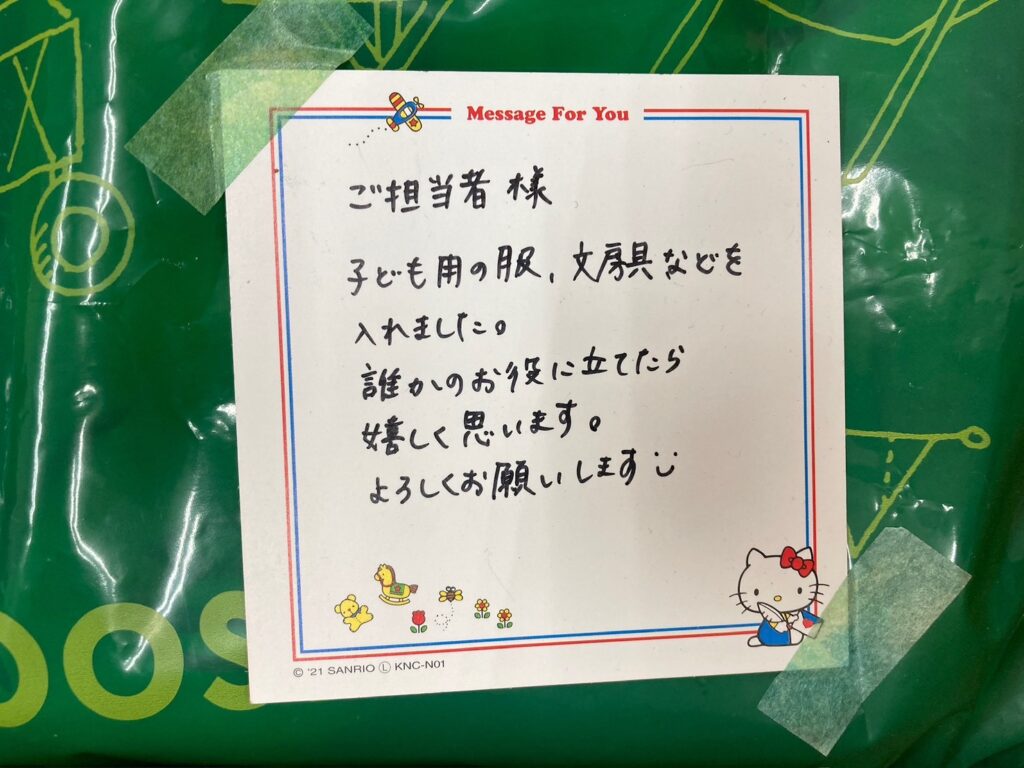 Message For You
ご担当者 様
子ども用の服、文房具などを
入れました。
誰かのお役に立てたら
嬉しく思います。
よろしくお願いします
© '21 SANRIO Ⓛ KNC-N01